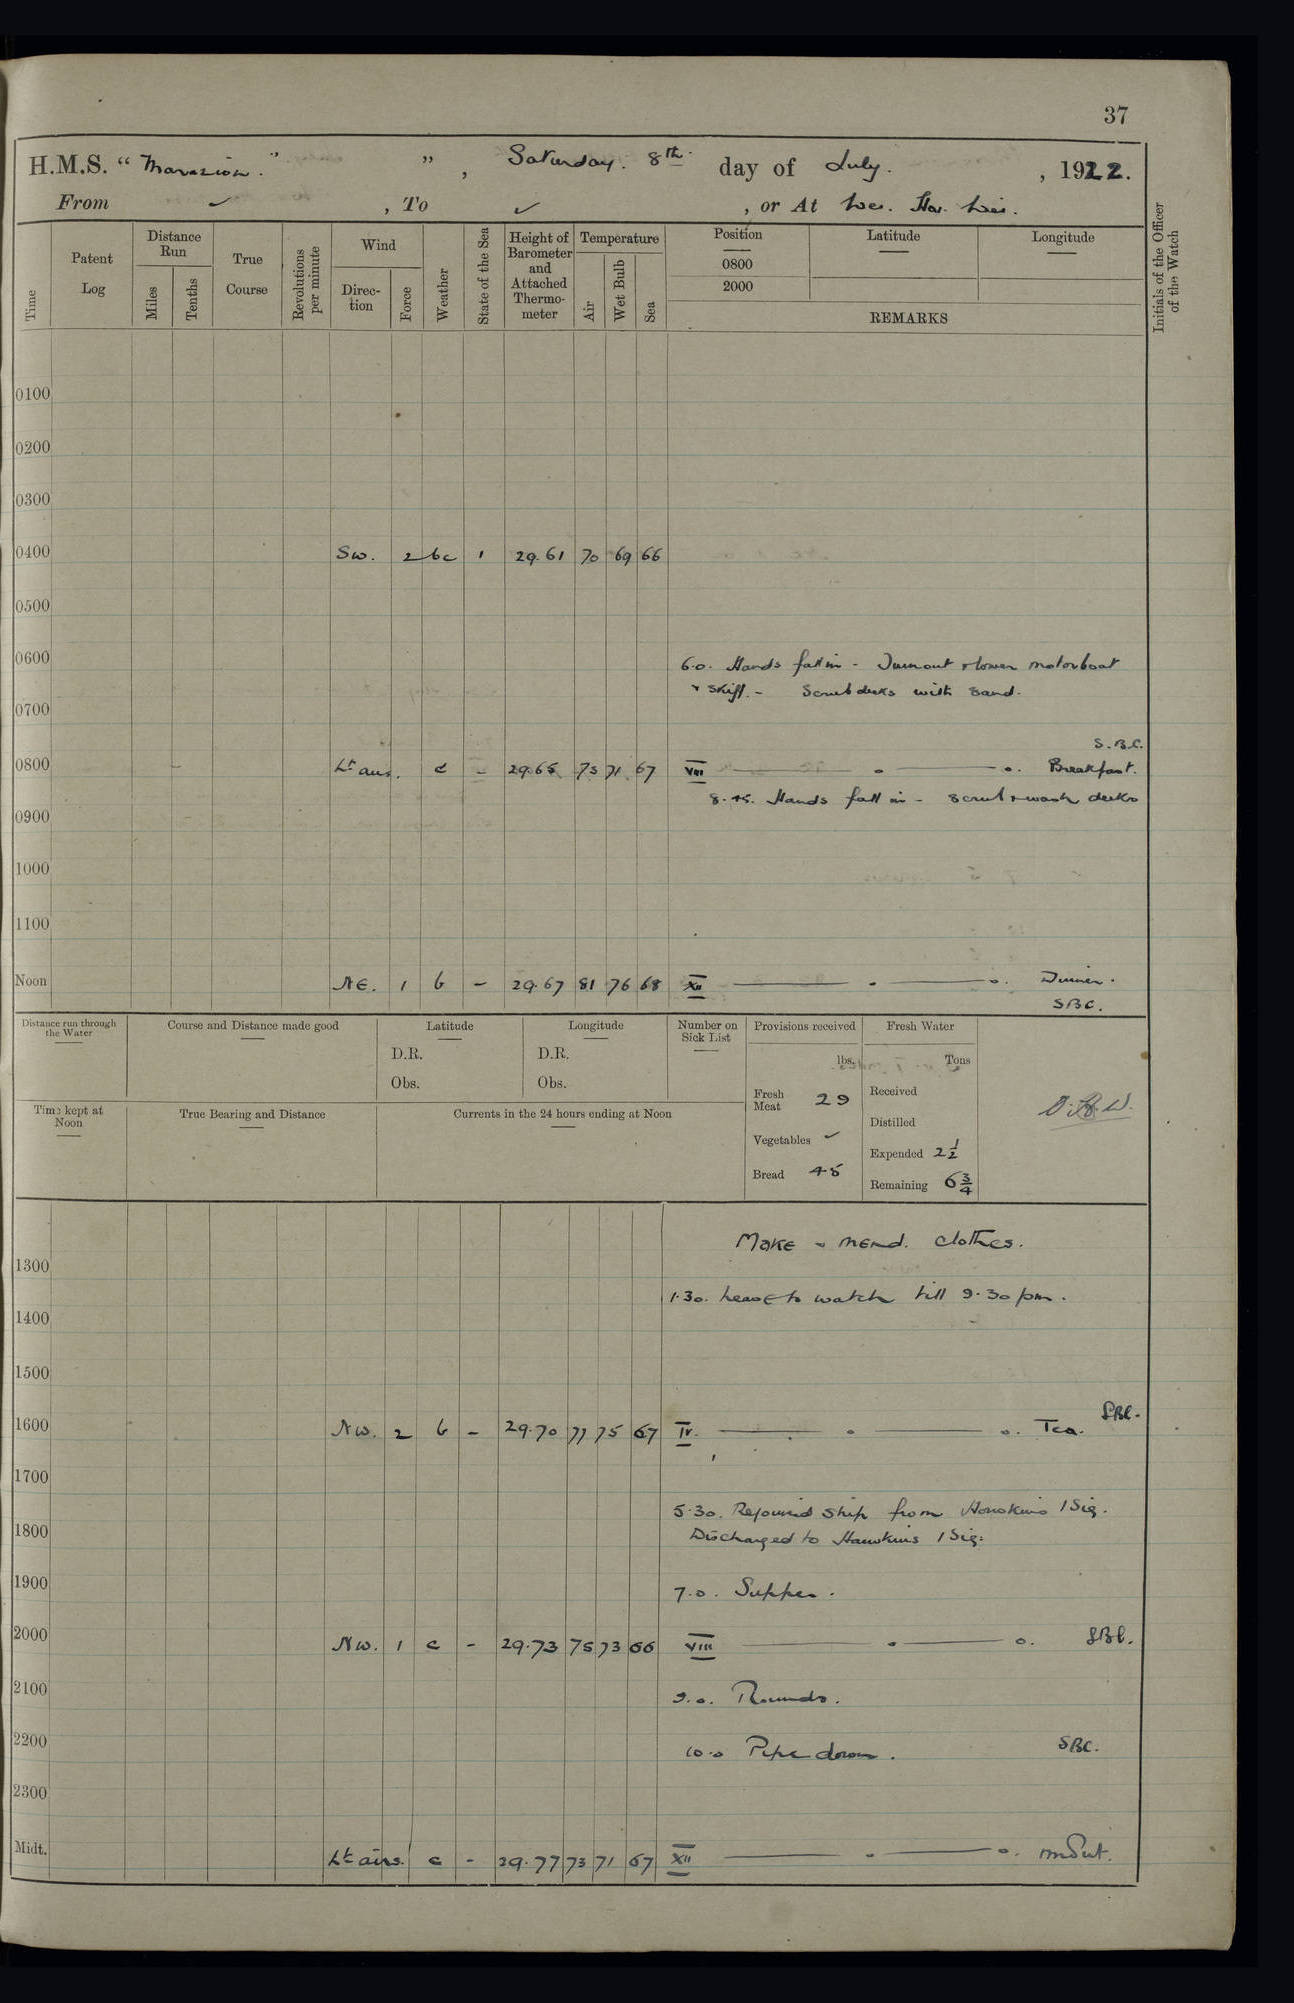 37
H.M.S. “ Marazion. ” , Saturday. 8th. day of July. , 1922.
From ✓ , To ✓ , or At Wei. Hai. Wei.
Time
Patent Log
Distance Run
Miles
Tenths
True Course
Revolutions per minute
Wind
Direction
Force
Weather
State of the Sea
Height of Barometer and Attached Thermometer
Temperature
Air
Wet Bulb
Sea
Position
0800
2000
Latitude
Longitude
REMARKS
Initials of the Officer of the Watch
0100
0200
0300
0400 SW. 2 bc 1 29.61 70 69 66
0500
0600 6.0. Hands fall in - Turn out & lower motorboat
& skiff. - Scrub decks with sand.
0700
S.B.C.
0800 Lt airs. c - 29.65 73 71 67 VIII — o — o. Breakfast.
8.45. Hands fall in - scrub & wash decks
0900
1000
1100
Noon NE. 1 b - 29.67 81 76 68 XII — o — o. Dinner.
SBC.
Distance run through the Water
Course and Distance made good
Latitude
D.R.
Obs.
Longitude
D.R.
Obs.
Number on Sick List
Provisions received
lbs.
Fresh Meat 29
Vegetables ✓
Bread 45
Fresh Water
Tons
Received
Distilled
Expended 2½
Remaining 6¾
Time kept at Noon
True Bearing and Distance
Currents in the 24 hours ending at Noon
Make & mend. clothes.
1300
1.30. Leave to watch till 9.30 pm.
1400
1500
SBC.
1600 NW. 2 b - 29.70 77 75 67 IV. — o — o. Tea.
1700
5.30. Rejoined ship from Hawkins 1 Sig.
1800 Discharged to Hawkins 1 Sig.
1900 7.0. Supper.
2000 NW. 1 c - 29.73 75 73 66 VIII — o — o. SBC.
2100 9.0. Rounds.
2200 10.0 Pipe down. SBC.
2300
Midt. Lt airs. c - 29.77 73 71 67 XII — o — o.